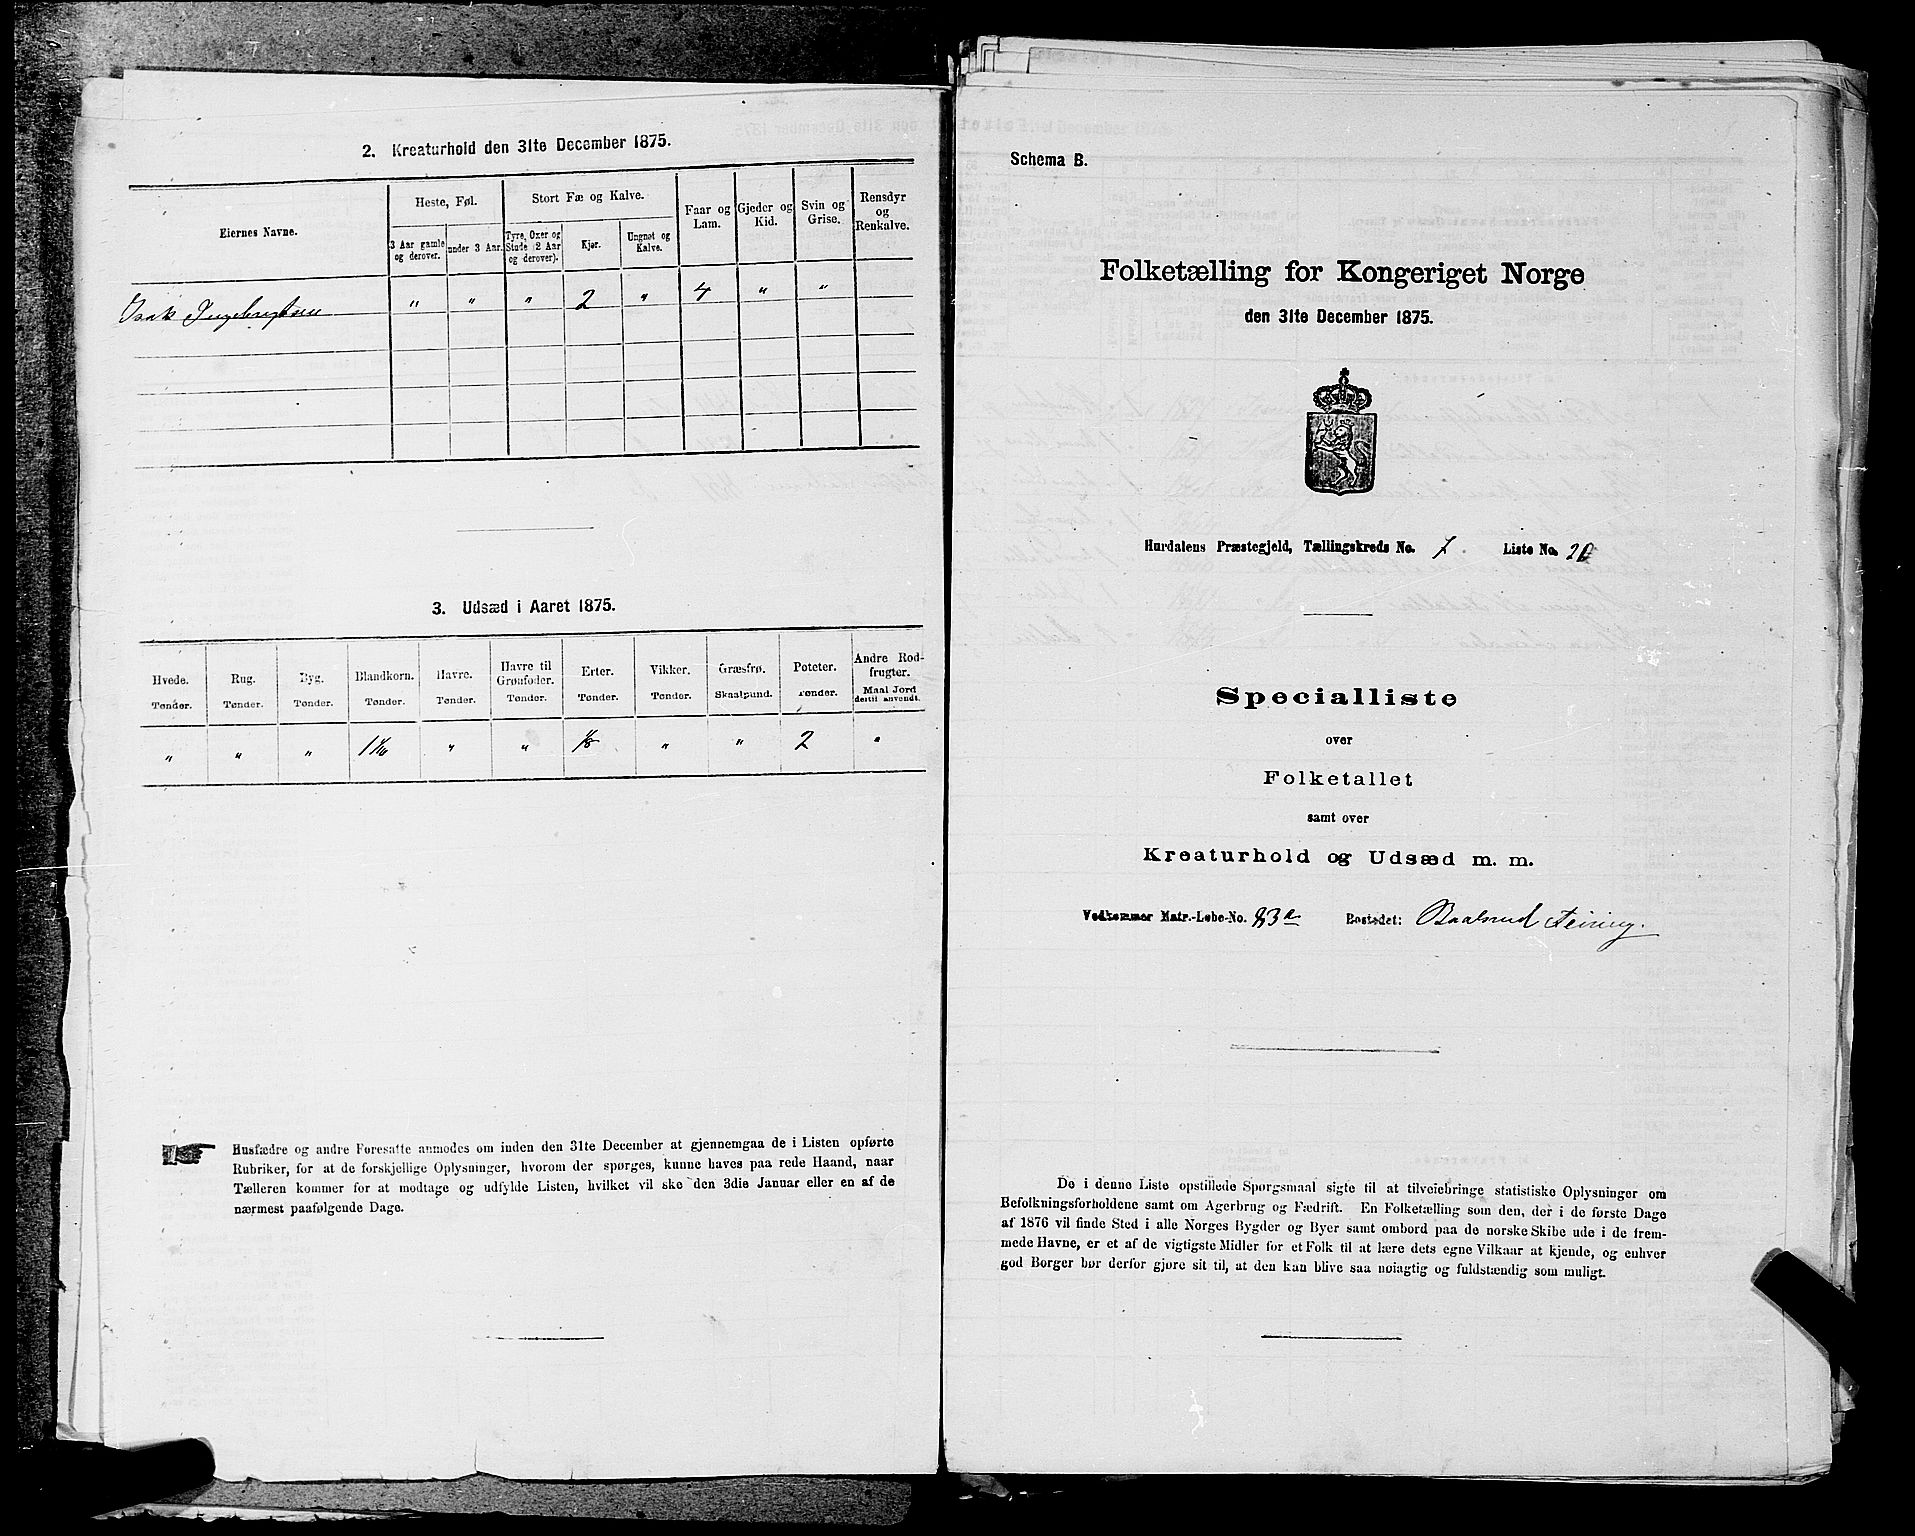 2. Kreaturhold den 31te December 1875.
Eiernes Navne.
Heste, Føl.
Stort Fæ og Kalve.
Faar og Lam.
Gjeder og Kid.
Svin og Grise.
Rensdyr og Renkalve.
3 Aar gamle og derover.
under 3 Aar.
Tyre, Oxer og Stude (2 Aar og derover).
Kjør.
Ungnøt og Kalve.
Isak Ingebrigtsen " " " 2 " 4 " "
3. Udsæd i Aaret 1875.
Hvede. Rug. Byg. Blandkorn. Havre. Havre til Grønfoder. Erter. Vikker. Græsfrø. Poteter. Andre Rodfrugter.
Tønder. Tønder. Tønder. Tønder. Tønder. Tønder. Tønder. Tønder. Skaalpund. Tønder. Maal Jord dertil anvendt.
" " " 1 1/16 " " 1/8 " " 2 "
Husfædre og andre Foresatte anmodes om inden den 31te December at gjennemgaa de i Listen opførte
Rubriker, for at de forskjellige Oplysninger, hvorom der spørges, kunne haves paa rede Haand, naar
Tælleren kommer for at modtage og udfylde Listen, hvilket vil ske den 3die Januar eller en af de
nærmest paafølgende Dage.
Schema B.
Folketælling for Kongeriget Norge
den 31te December 1875.
Hurdalens Præstegjeld, Tællingskreds No. 7. Liste No. 20
Specialliste
over
Folketallet
samt over
Kreaturhold og Udsæd m. m.
Vedkommer Matr.-Løbe-No. 83a Bostedet: Baalsrud Feiring.
De i denne Liste opstillede Spørgsmaal sigte til at tilveiebringe statistiske Oplysninger om
Befolkningsforholdene samt om Agerbrug og Fædrift. En Folketælling som den, der i de første Dage
af 1876 vil finde Sted i alle Norges Bygder og Byer samt ombord paa de norske Skibe ude i de frem-
mede Havne, er et af de vigtigste Midler for et Folk til at lære dets egne Vilkaar at kjende, og enhver
god Borger bør derfor gjøre sit til, at den kan blive saa nøiagtig og fuldstændig som muligt.